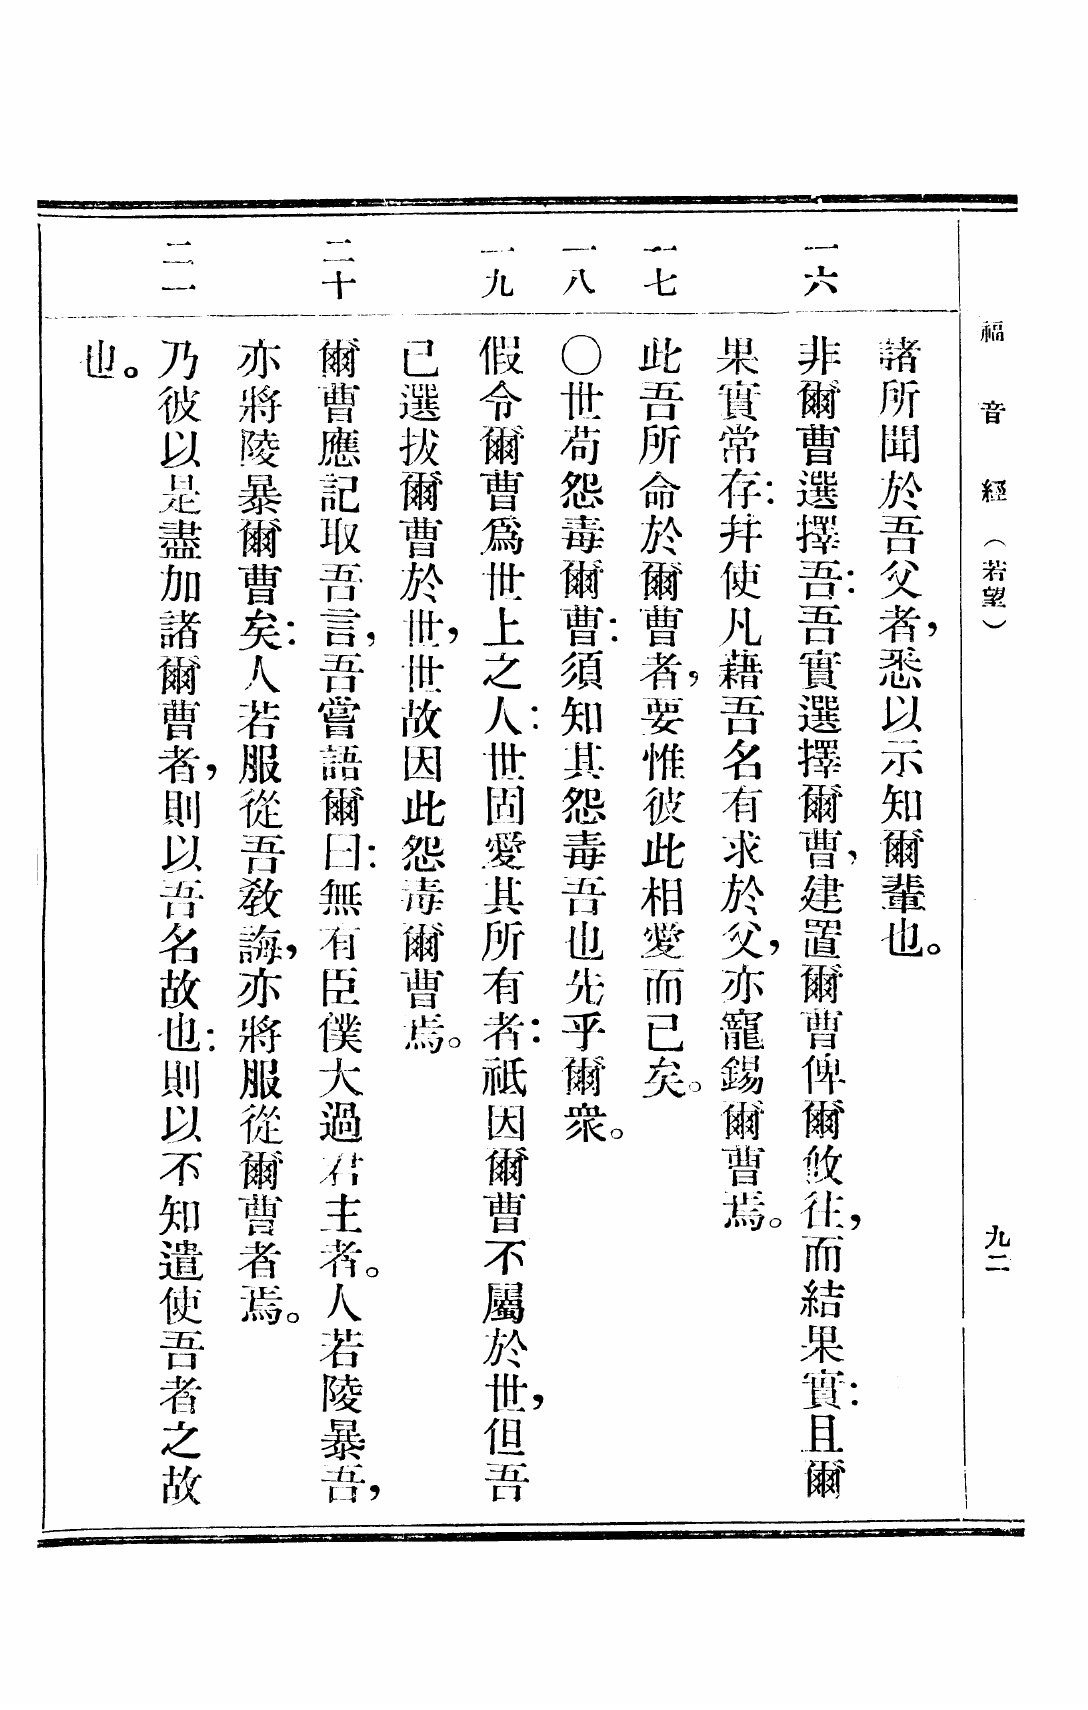 福音經（若望）
九二
諸所聞於吾父者，悉以示知爾輩也。
一六
非爾曹選擇吾：吾實選擇爾曹，建置爾曹俾爾攸往，而結果實：且爾
果實常存：幷使凡藉吾名有求於父，亦寵錫爾曹焉。
一七
此吾所命於爾曹者，要惟彼此相愛而已矣。
一八
○世苟怨毒爾曹：須知其怨毒吾也先乎爾衆。
一九
假令爾曹爲世上之人：世固愛其所有者：祇因爾曹不屬於世，但吾
已選拔爾曹於世，世故因此怨毒爾曹焉。
二十
爾曹應記取吾言，吾嘗語爾曰：無有臣僕大過君主者。人若陵暴吾，
亦將陵暴爾曹矣：人若服從吾敎誨，亦將服從爾曹者焉。
二一
乃彼以是盡加諸爾曹者，則以吾名故也：則以不知遣使吾者之故
也。